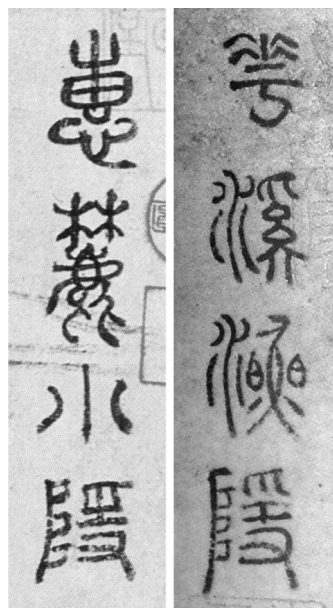 花溪漁隱
惠麓小隱